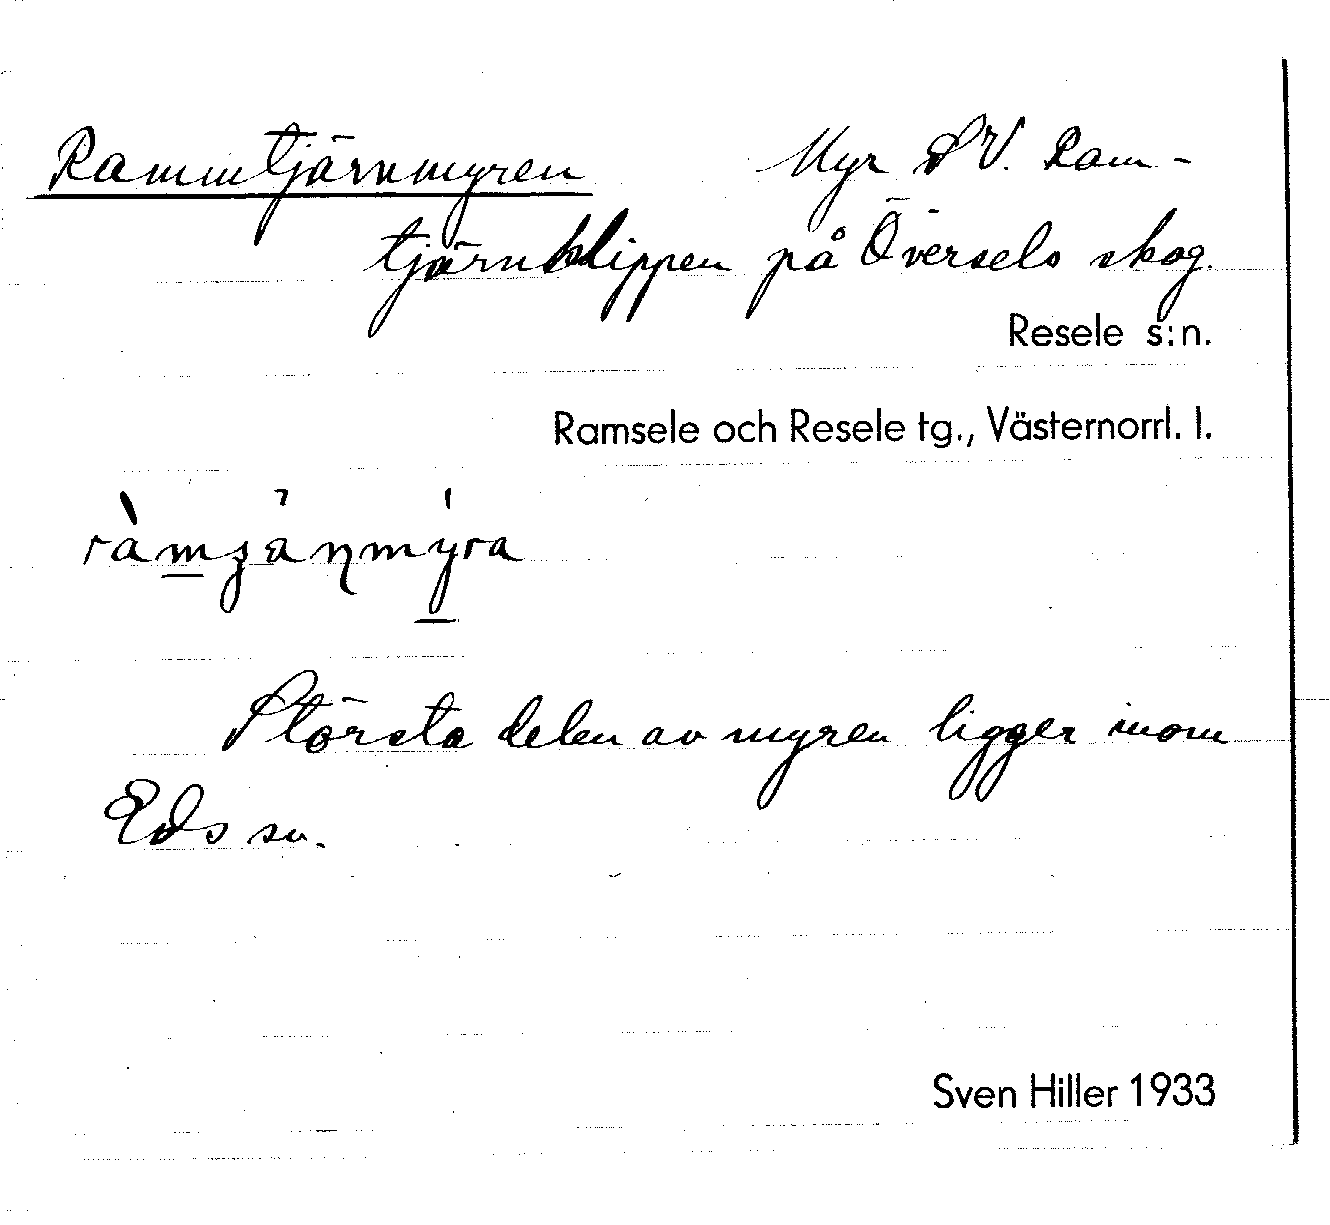 Rammtjärnmyren Myr SV. Ram-
tjärnklippen på Översels skog.
Resele s:n.
Ramsele och Resele tg., Västernorrl. l.
Största delen av myren ligger inom
Eds sn.
Sven Hiller 1933